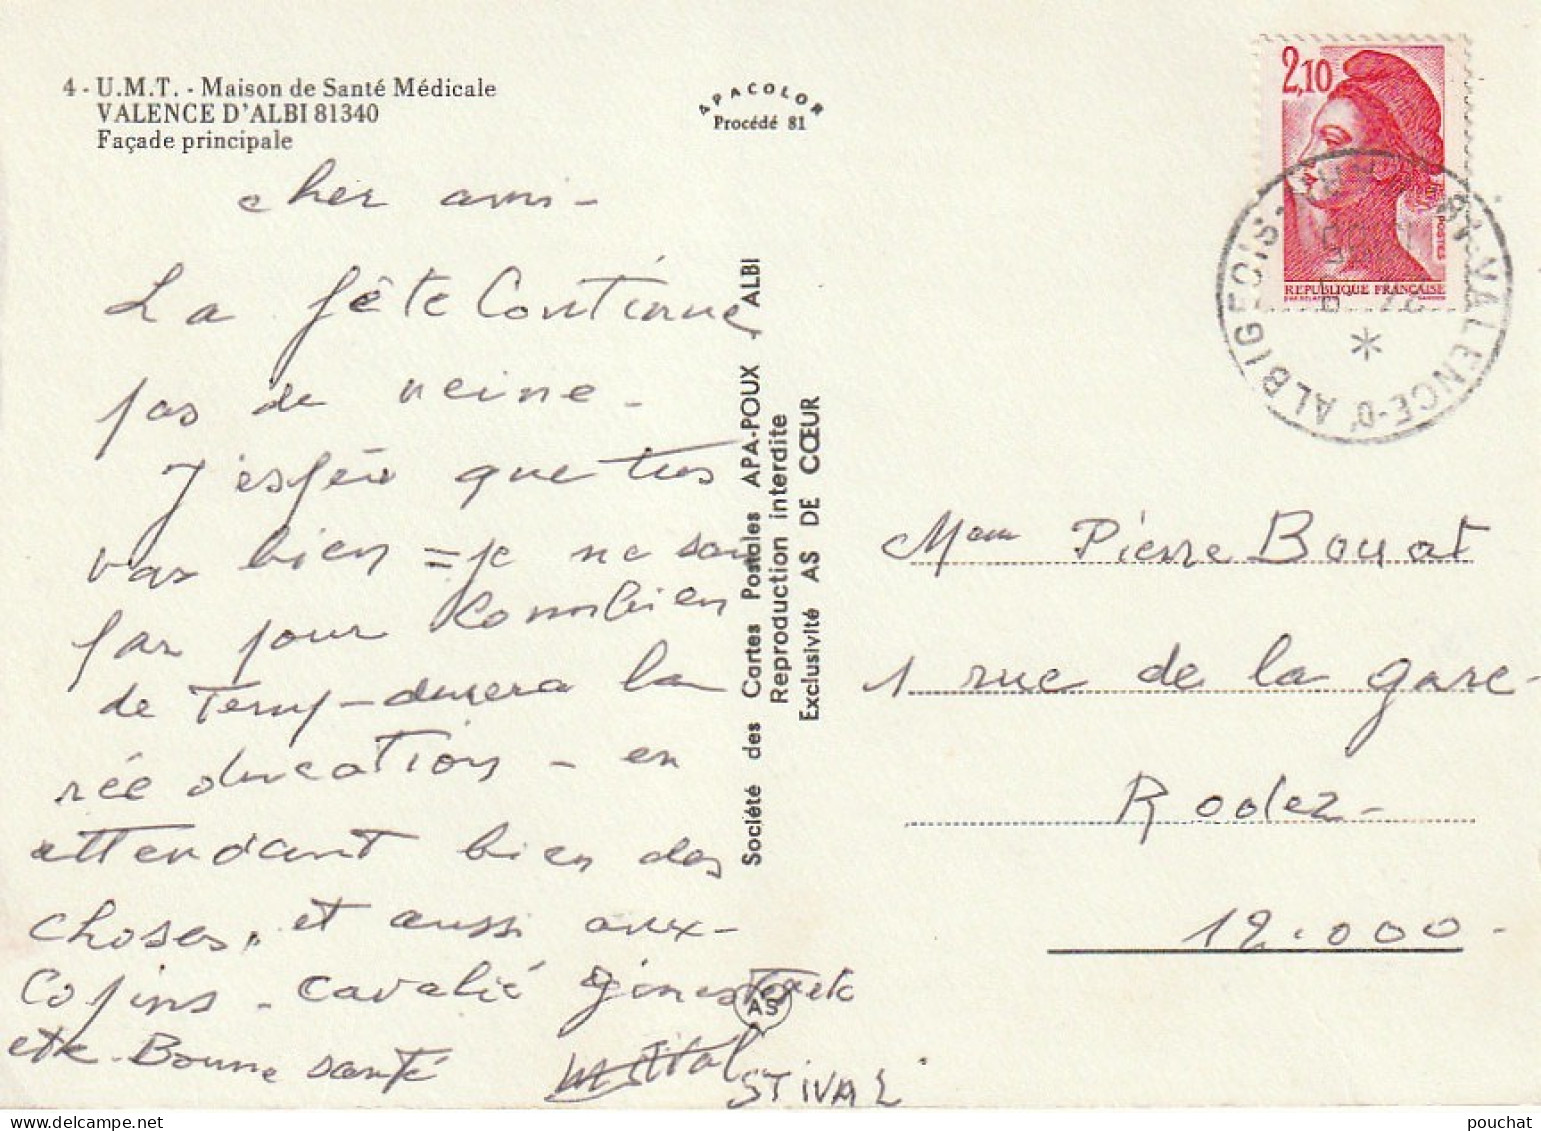 4 - U.M.T. - Maison de Santé Médicale
VALENCE D'ALBI 81340
Façade principale
APACOLOR
Procédé 81
cher ami -
La fête Continue
pas de veine -
J'espère que tu es
vas bien = je ne sais
pas pour Combien
de Temps - durera la
rée ducation - en
attendant bien des
choses, et aussi aux -
Copins - Cavalié Ginestet etc
etc - Bonne santé
STIVAL
Société des Cartes Postales APA-POUX ALBI
Reproduction interdite
Exclusivité AS DE CŒUR
AS
2,10
POSTES
REPUBLIQUE FRANÇAISE
81 - VALENCE - D'ALBIGEOIS
Pierre Bouat
1 rue de la gare -
Rodez -
12.000 -
pouchat